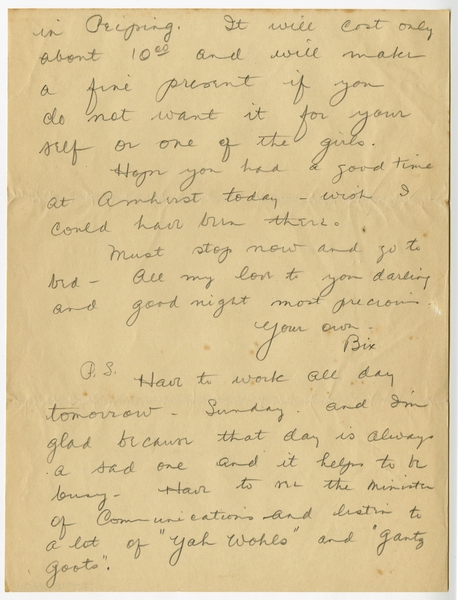 in Peiping. It will cost only
about 10.00 and will make
a fine present if you
do not want it for your
self or one of the girls.
Hope you had a good time
at Amherst today - wish I
could have been there.
Must stop now and go to
bed - All my love to you darling
and good night most precious.
Your own -
Bix
P.S. Have to work all day
tomorrow - Sunday. and I'm
glad because that day is always
a sad one and it helps to be
busy - Have to see the Minister
of Communications and listen to
a lot of "Yah Wohls" and "gantz
goots".